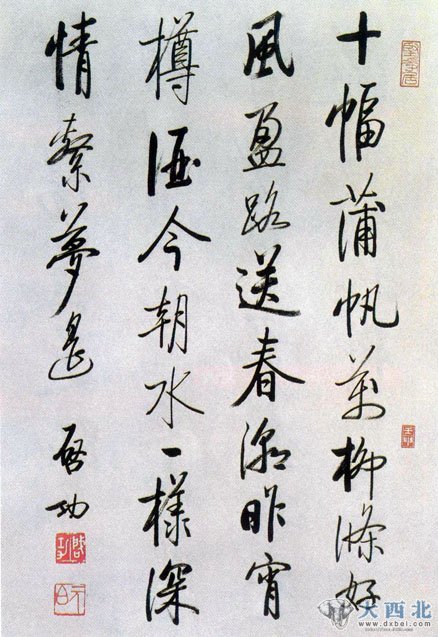 十幅蒲帆萬柳條好
風盈路送春潮昨宵
樽酒今朝水一樣深
情繫夢遙
啓功
大西北
www.dxbei.com